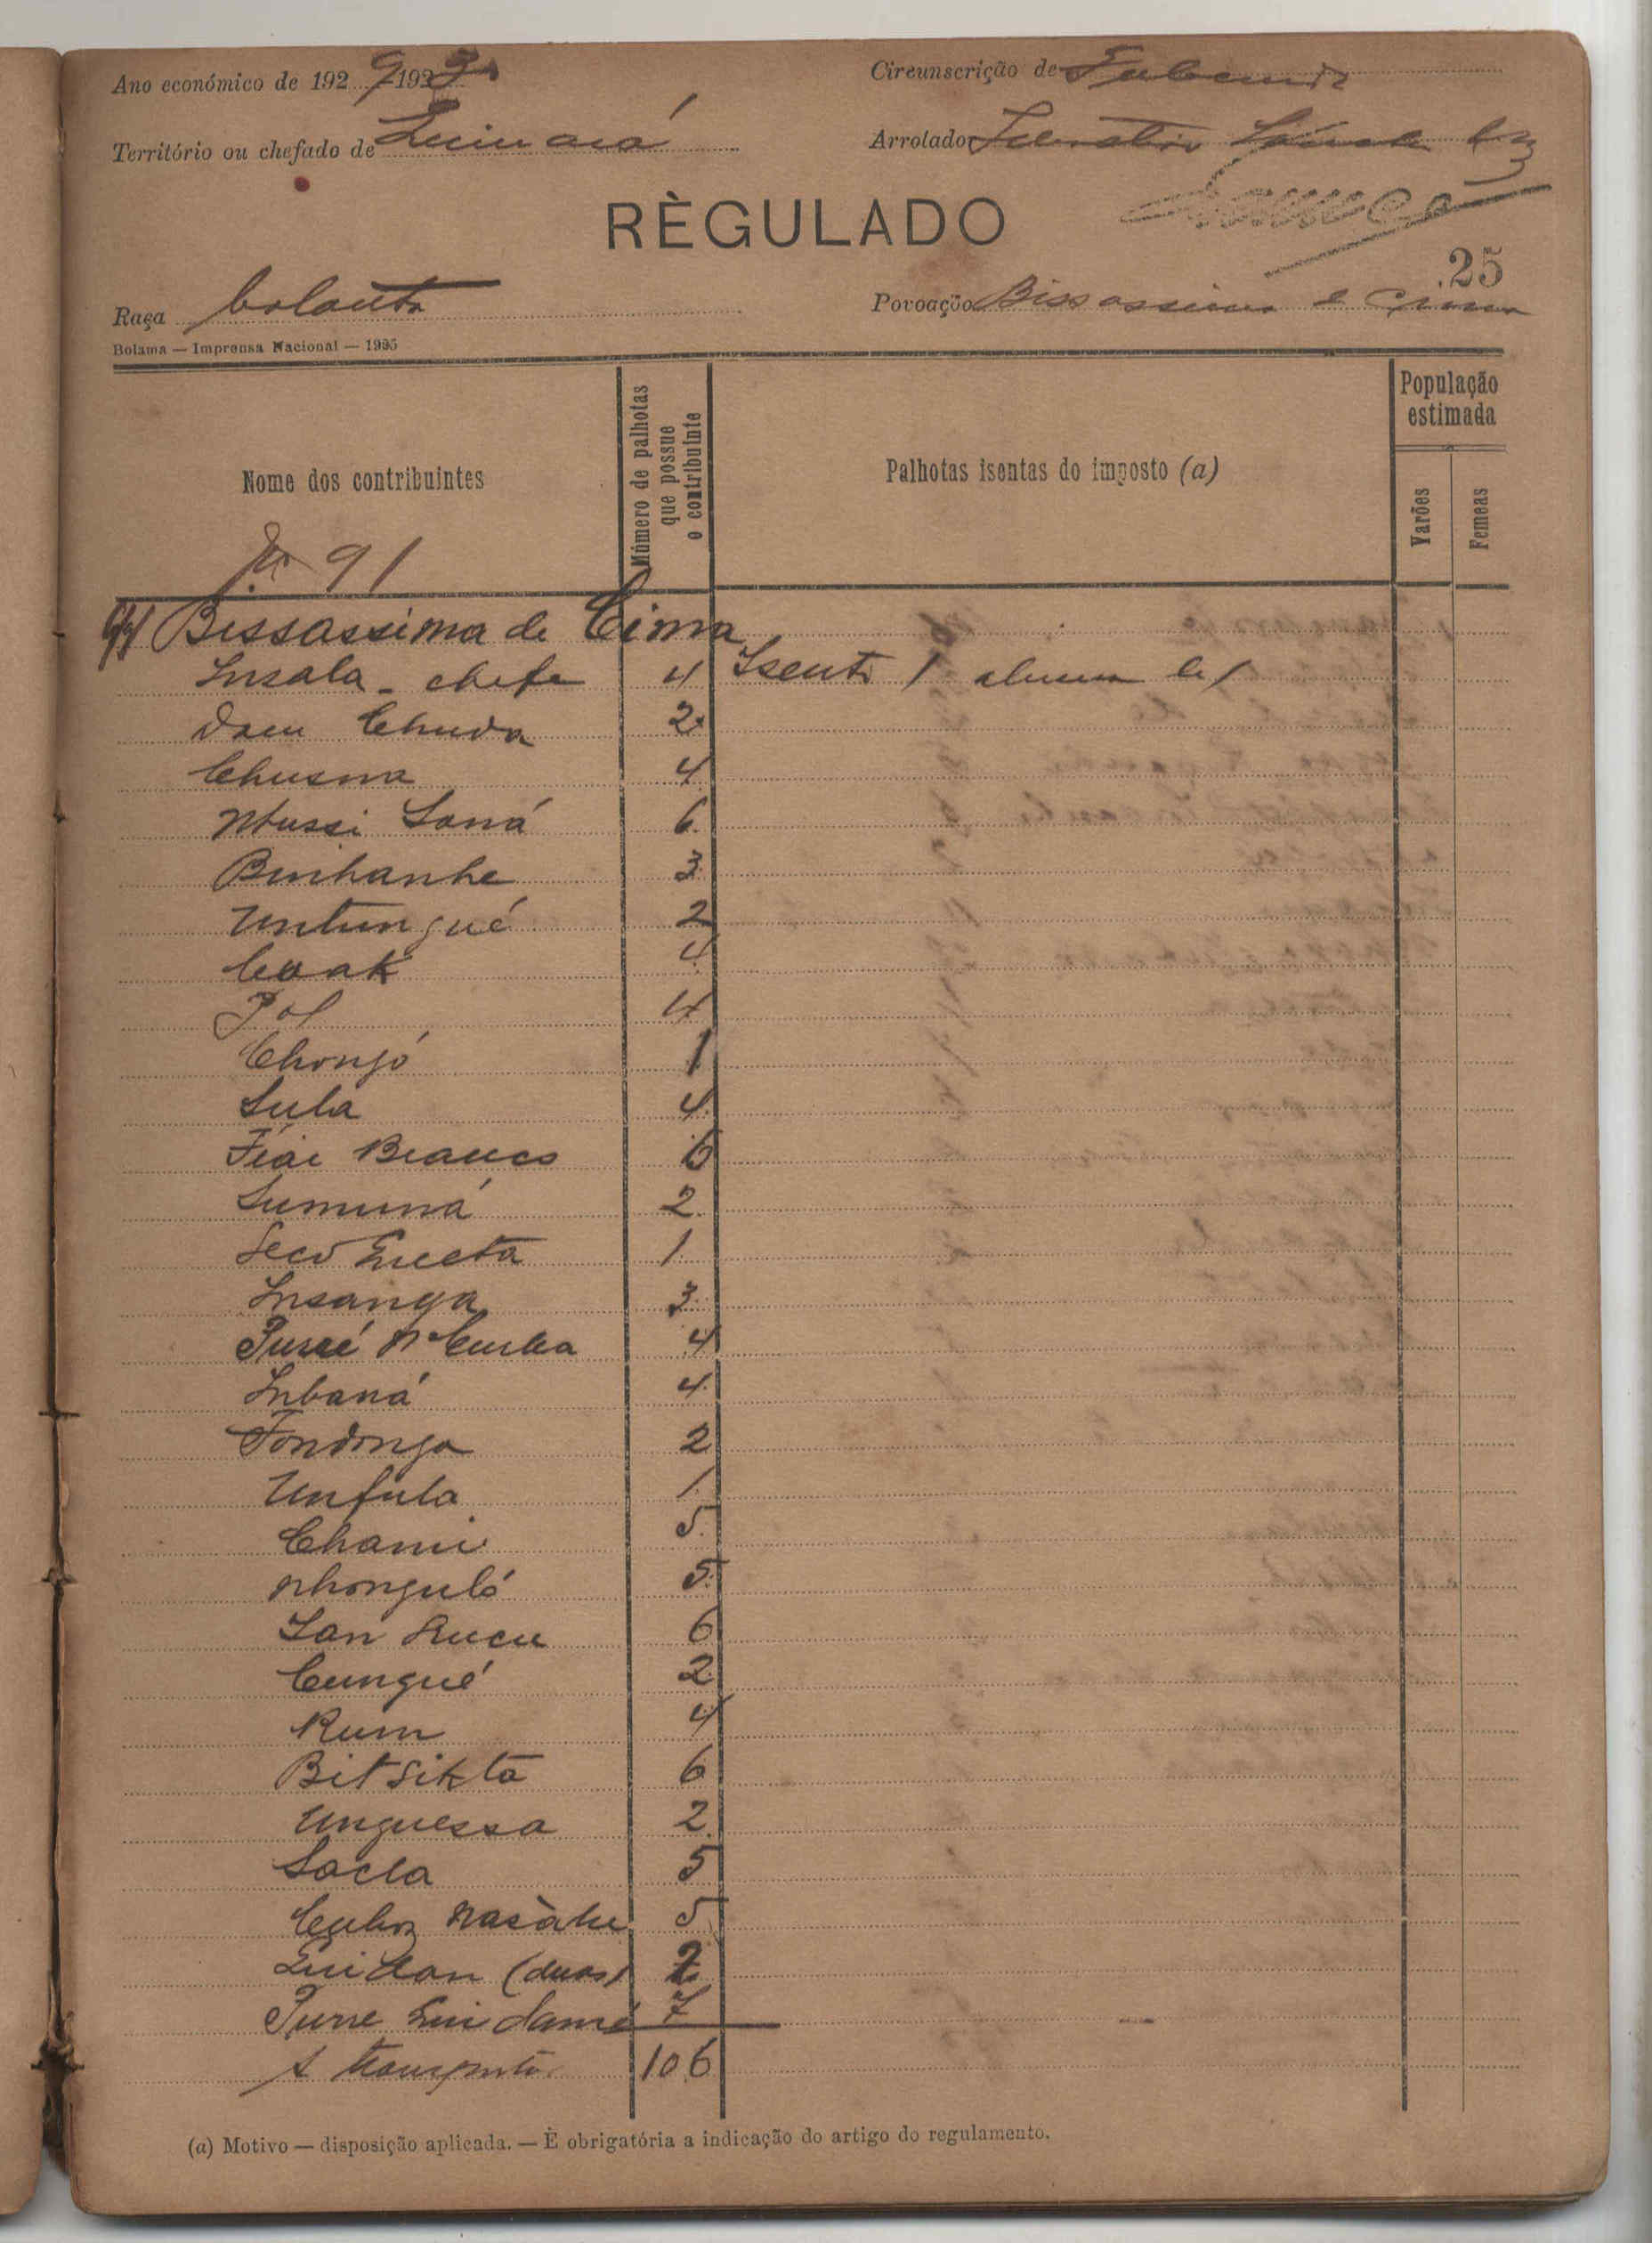 Ano económico de 192 9/193
Circunscrição de
Território ou chefado de
Arrolador
RÈGULADO
25
Raça balanta
Povoação Bissassima e Cima
Bolama — Imprensa Nacional — 1925
Nome dos contribuintes
Número de palhotas que possue o contribuinte
Palhotas isentas do imposto (a)
População estimada
Varões
Femeas
No 91
Bissassima de Cima
Insala - chefe 4 Isento 1
Chuda 2
Chusna 4
Ntussi Saná 6
Binhanhe 3
Untungué 2
Coak 4
Pol 4
Chongó 1
Sula 4
Fiai Branco 6
Sumuná 2
Seco Sueta 1
Insanga 3
4
Inbaná 4
Fondonga 2
Unfula 1
Chami 5
Nhonguló 5
San Rucu 6
Cungué 2
Rum 4
Bit Sikta 6
Unguessa 2
Sacla 5
5
(duas) 2
7
A transportar 106
(a) Motivo — disposição aplicada. — È obrigatória a indicação do artigo do regulamento.